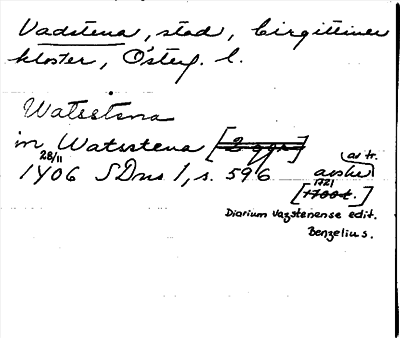 Vadstena, stad, birgittiner
kloster, Österg. l.
Watsstena
in Watsstena [2 ggr]
28/11
1406 SDns 1, s. 596 avskr
av tr.
1721
[1700t.]
Diarium Vazstenense edit.
Benzelius.